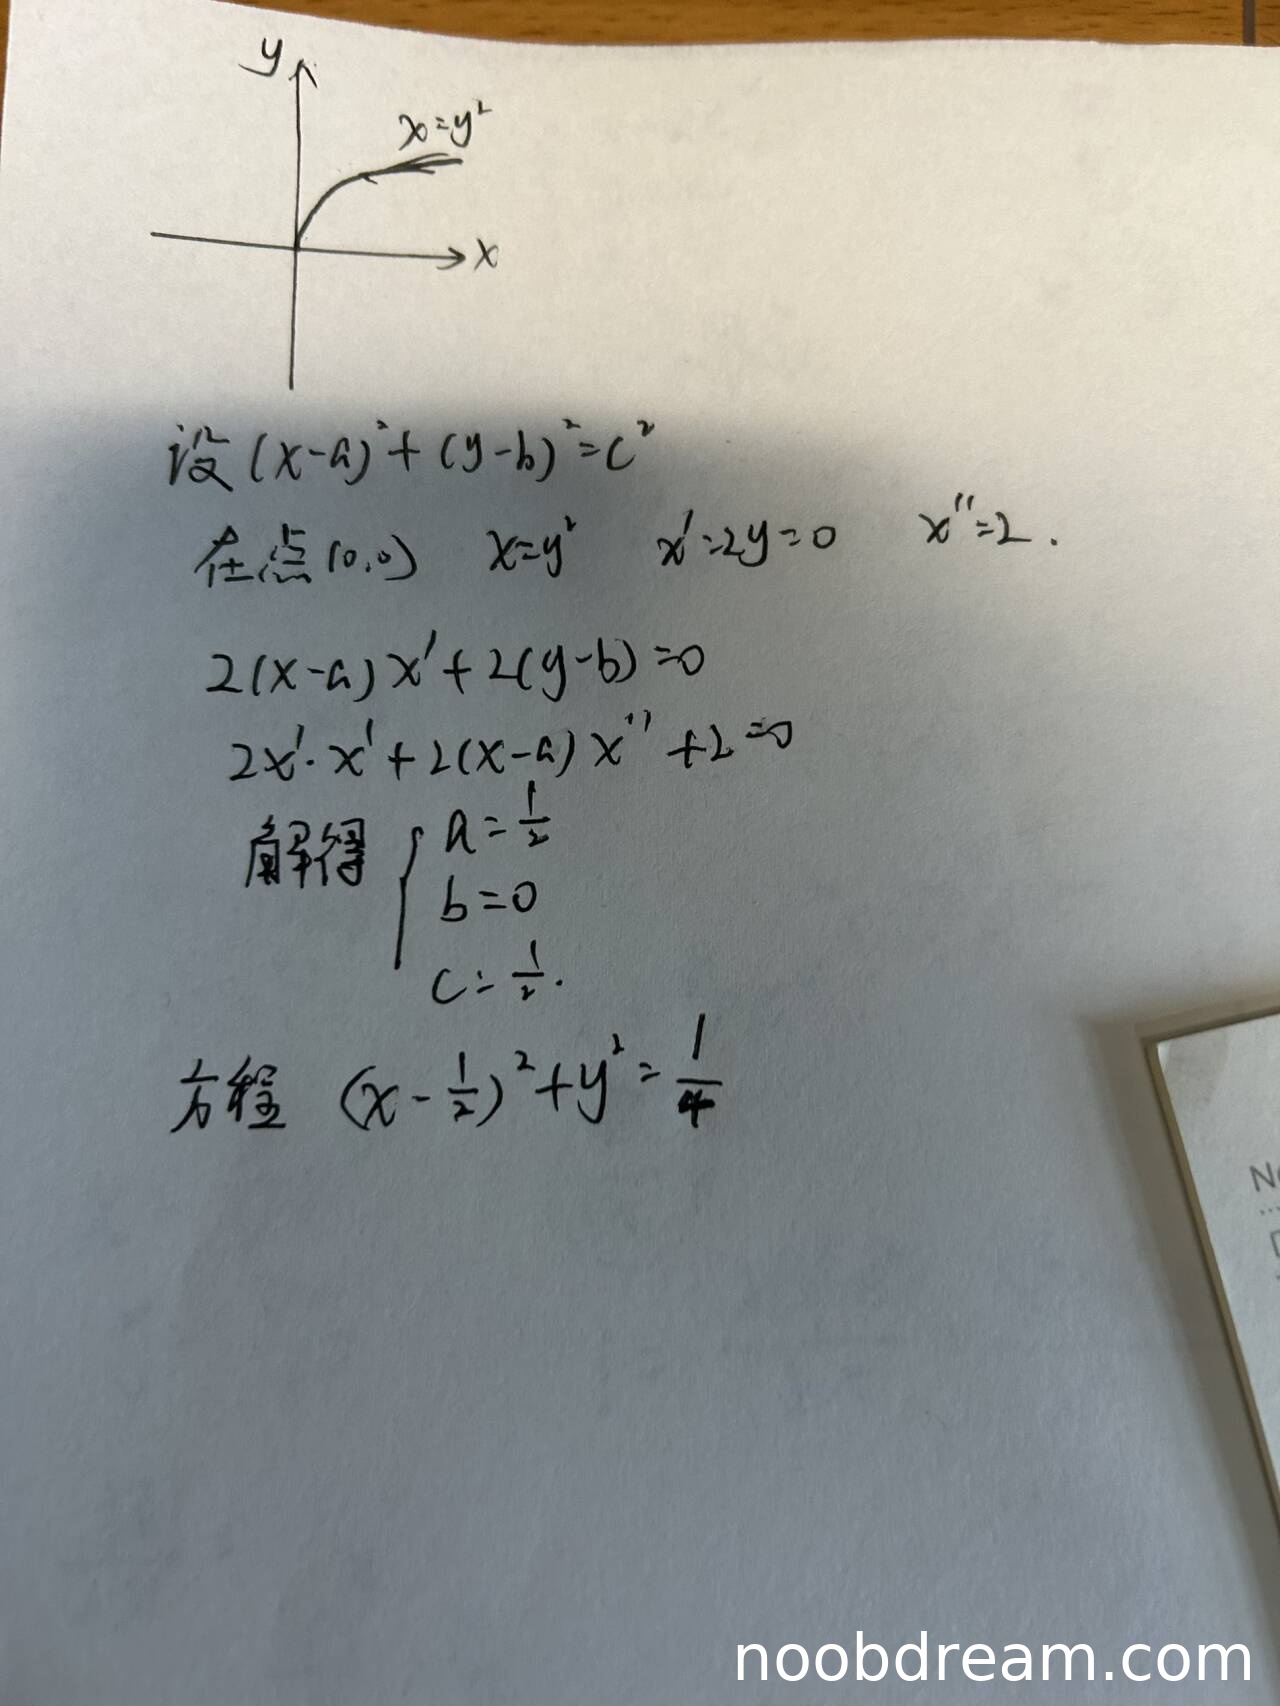 y
x=y²
x
设(x-a)²+(y-b)²=c²
在点(0,0) x=y² x'=2y=0 x''=2.
2(x-a)x'+2(y-b)=0
2x'·x'+2(x-a)x''+2=0
解得 { a=1/2
b=0
c=1/2.
方程 (x-1/2)²+y²=1/4
noobdream.com